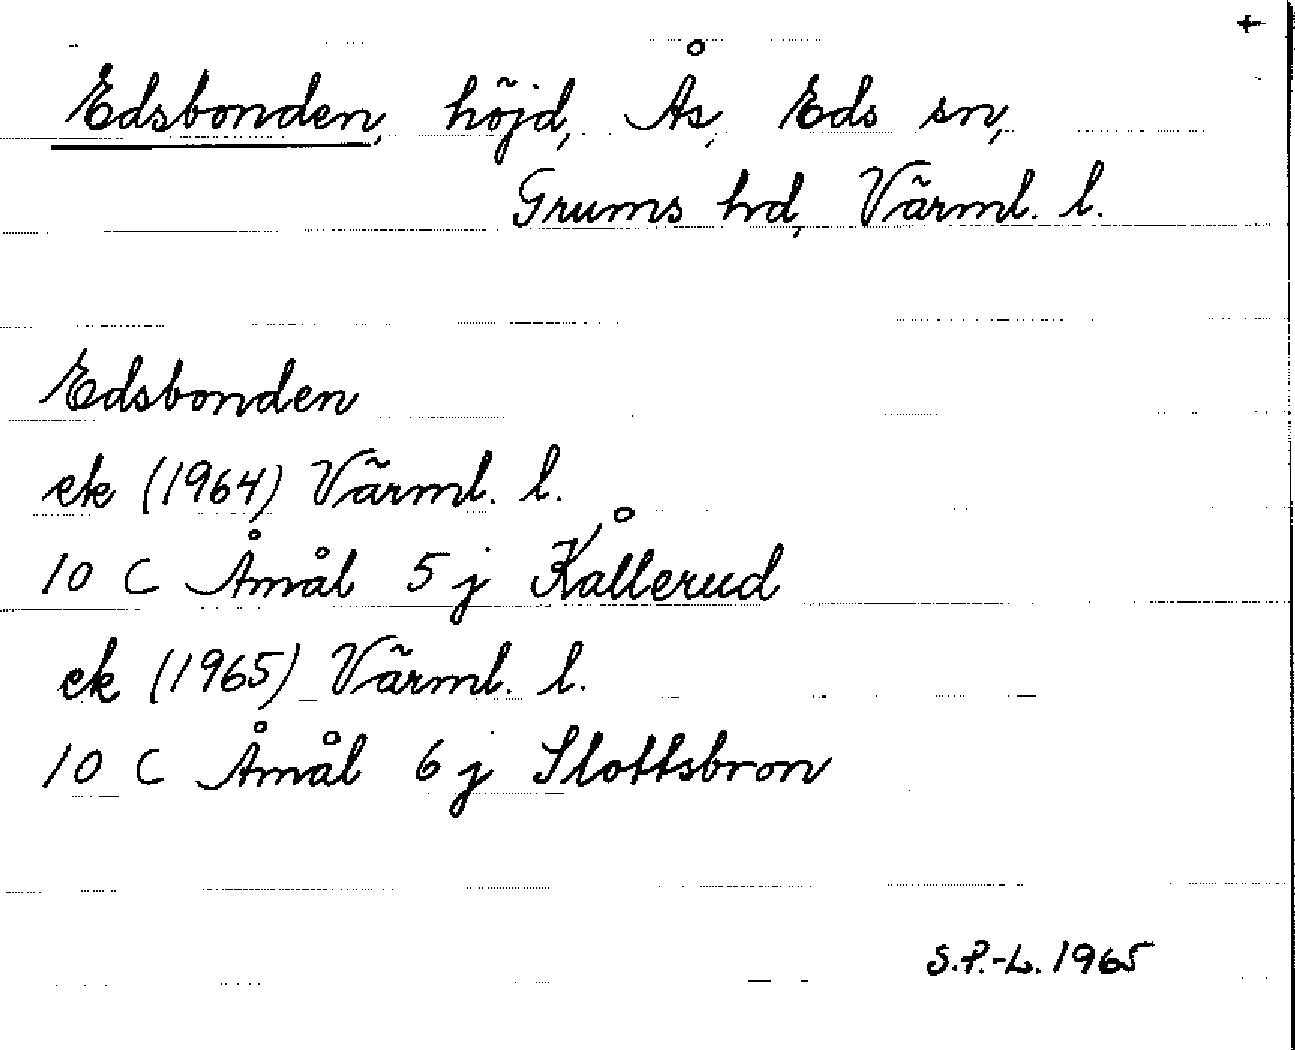 +
Edsbonden, höjd, Ås, Eds sn,
Grums hd, Värml. l.
Edsbonden
ek (1964) Värml. l.
10 C Åmål 5 j Kållerud
ek (1965) Värml. l.
10 C Åmål 6 j Slottsbron
S.P.-L. 1965